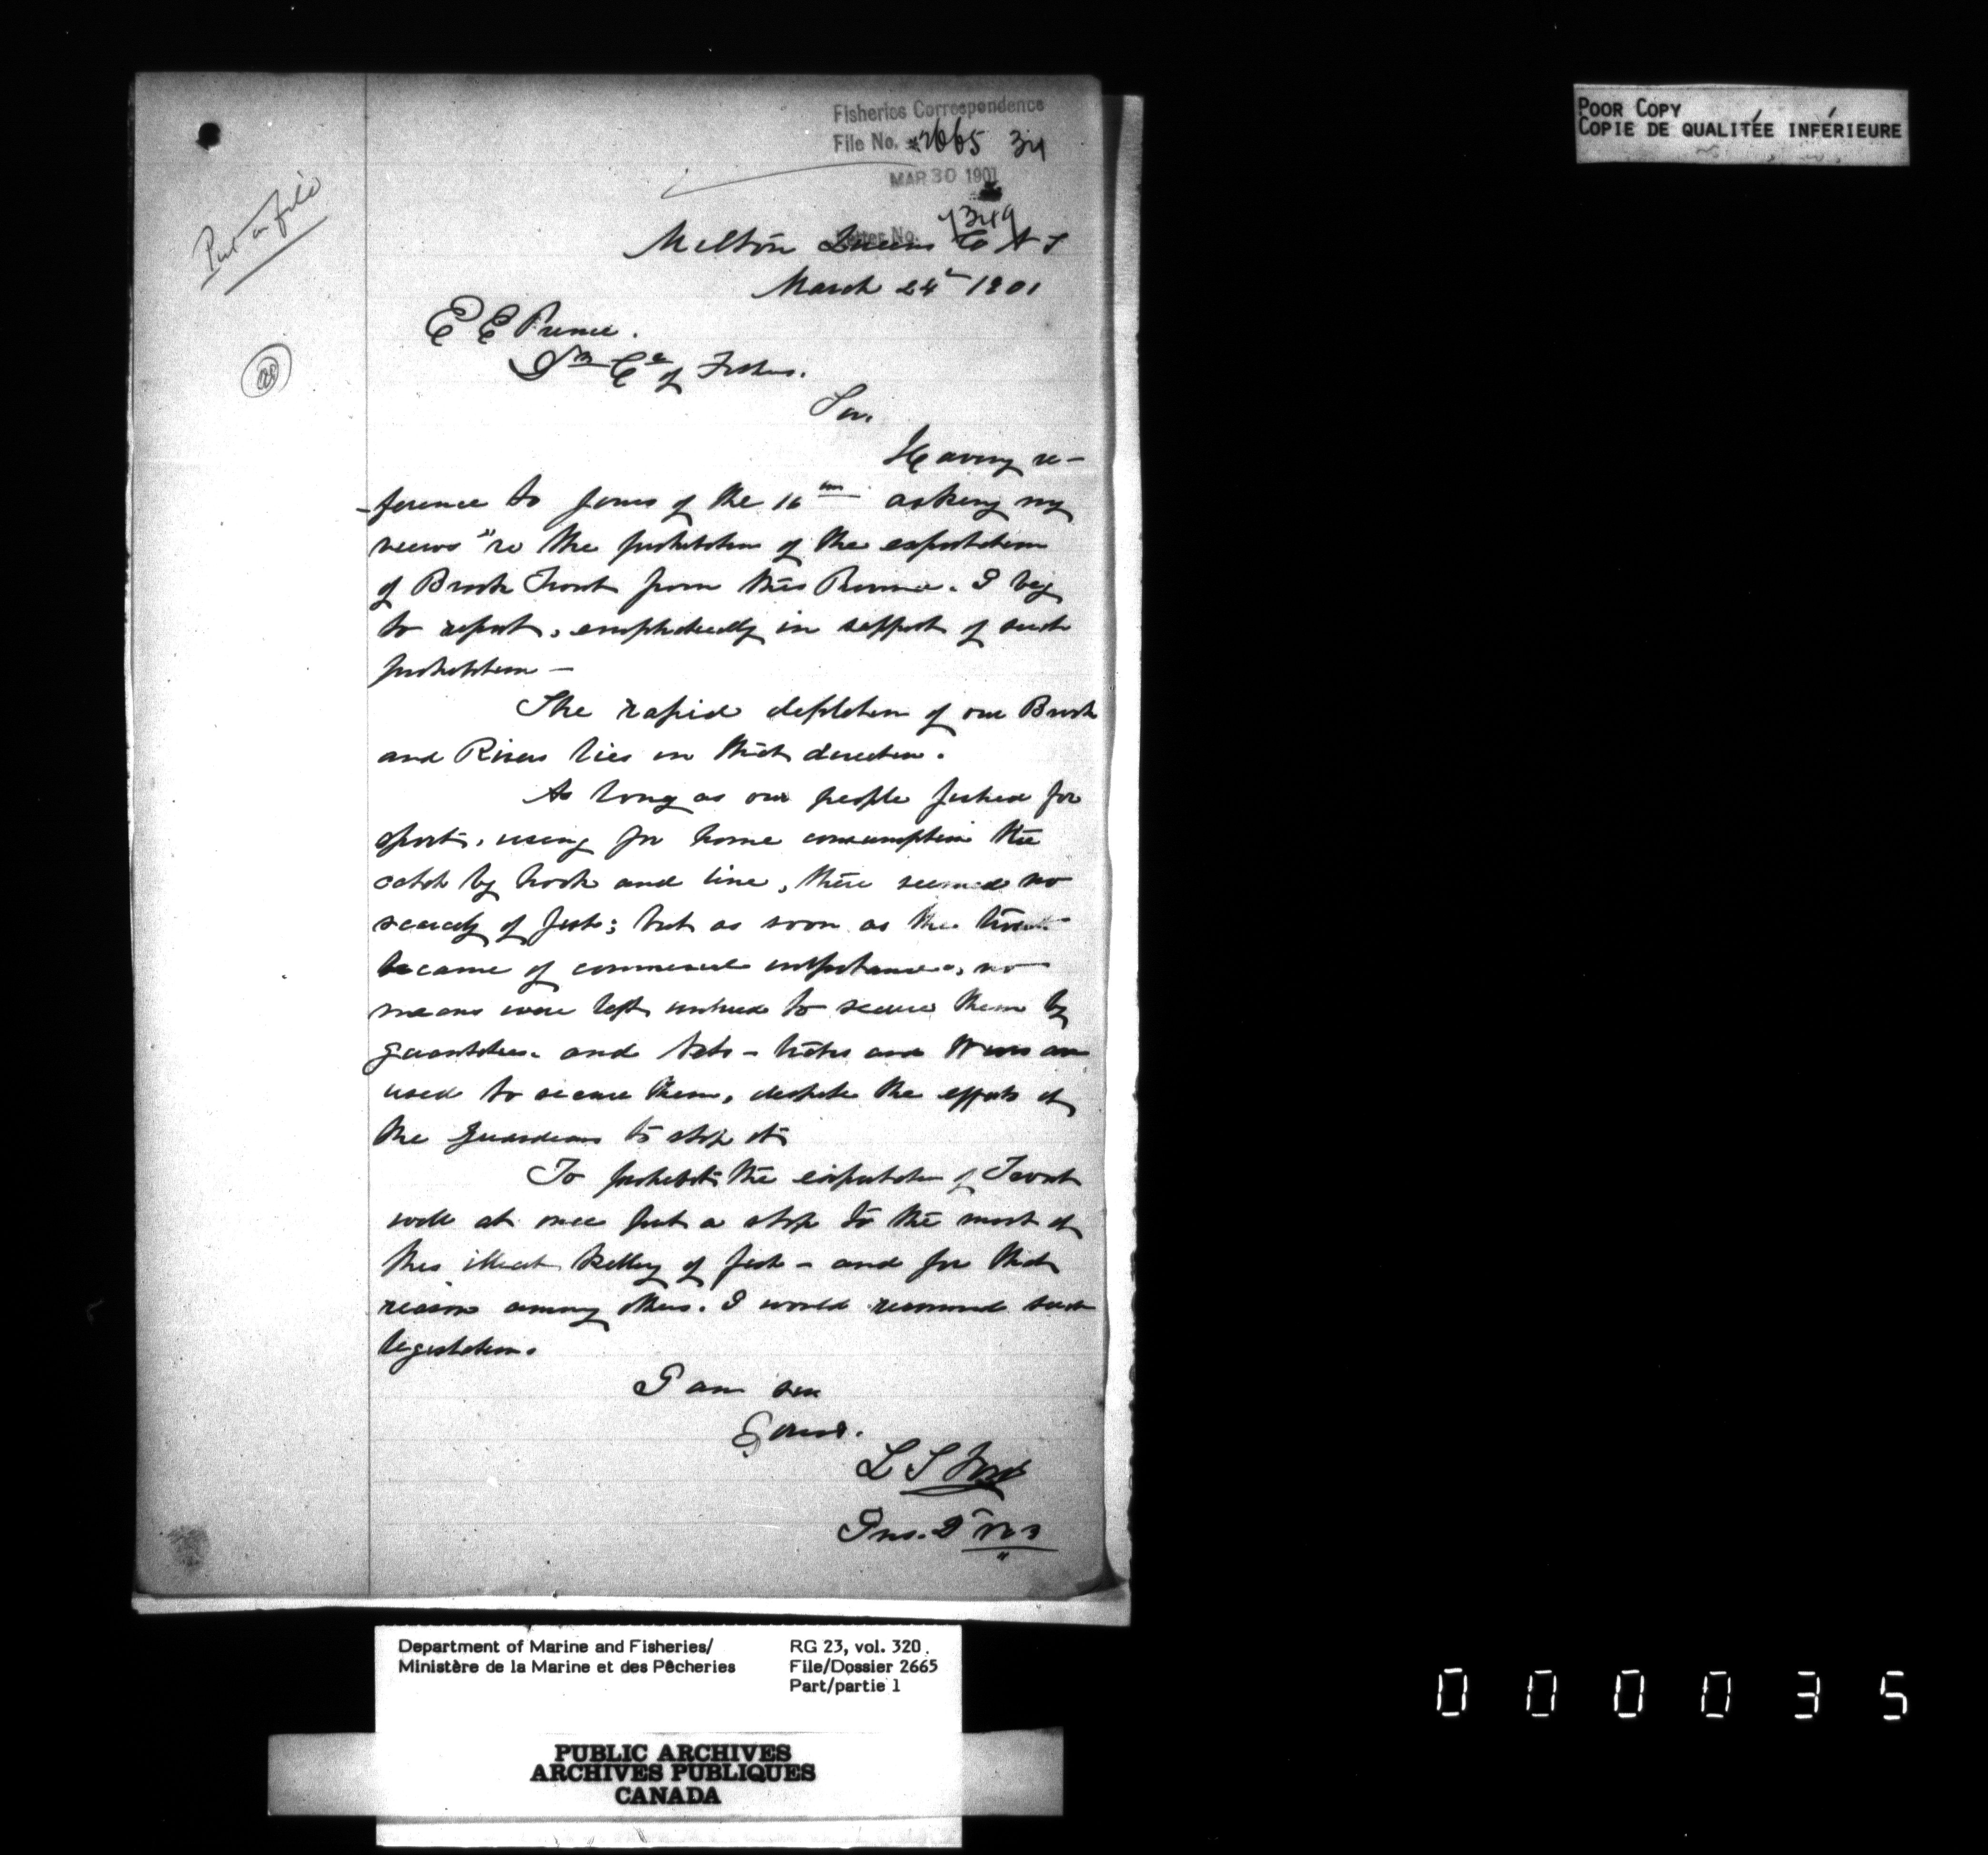 POOR COPY
COPIE DE QUALITÉE INFÉRIEURE
Fisheries Correspondence
File No. 2665 34
MAR 30 1901
Letter No. 7349
Put on file
Milton Queens Co N S
March 24th 1901
E E Prince.
of Fishes.
Sir.
Having re-
-ference to yours of the 16th asking my
views "re the prohibition of the exportation
of Brook Trout from this Province. I beg
to report, emphatically in support of such
prohibition —
The rapid depletion of our Brook
and Rivers lies in that direction.
As long as our people fished for
sport, using for home consumption the
catch by hook and line, there seemed no
scarcity of fish; but as soon as the trout
became of commercial importance, no
means were left untried to secure them by
quantities. and Nets - and Wiers are
used to secure them, despite the efforts of
the Guardians to stop it
To prohibit the exportation of Trout
will at once put a stop to the most of
this illicit killing of fish - and for that
reason among others. I would recommend such
legislation.
I am sir
Yours.
L S Ford
Ins. Dt No 3
Department of Marine and Fisheries/
Ministère de la Marine et des Pêcheries
RG 23, vol. 320
File/Dossier 2665
Part/partie 1
PUBLIC ARCHIVES
ARCHIVES PUBLIQUES
CANADA
000035